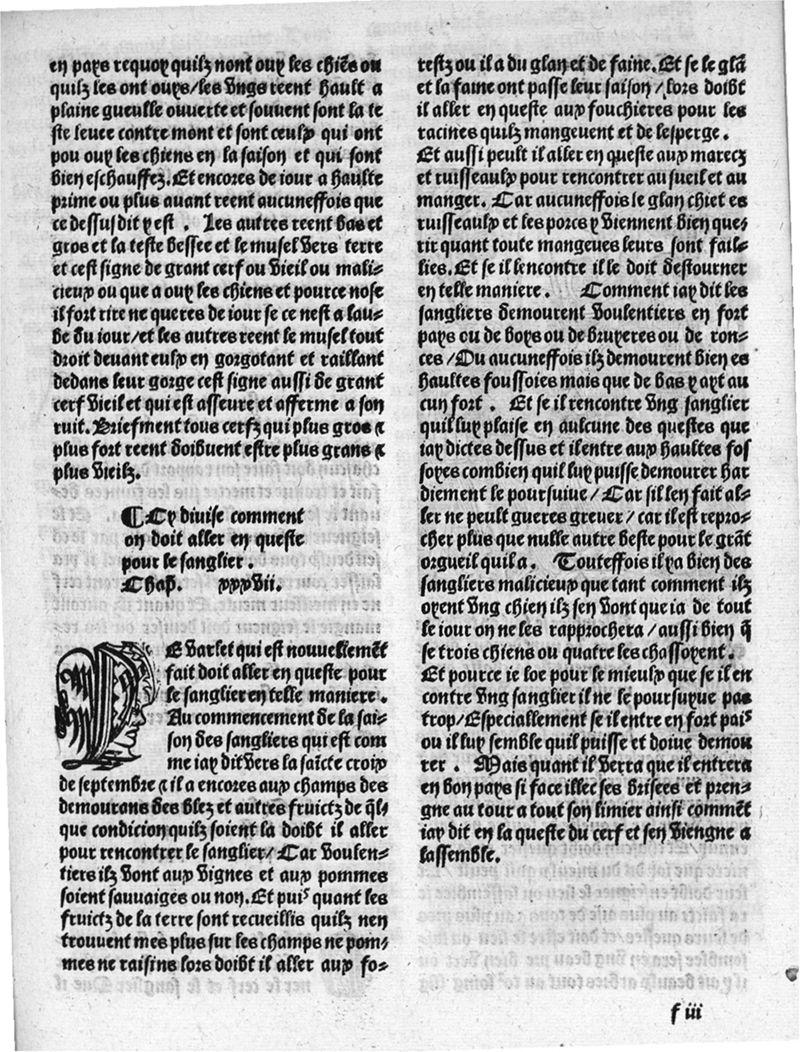 en pays requoy quilz nont ouy les chiēs ou
quilz les ont ouys/les vngs reent hault a
plaine gueulle ouuerte et souuent sont la te
ste leuee contre mont et sont ceulx qui ont
pou ouy les chiens en la saison et qui sont
bien eschauffez. Et encores de iour a haulte
prime ou plus auant reent aucuneffois que
ce dessus dit y est . Les autres reent bas et
gros et la teste bessee et le musel vers terre
et cest signe de grant cerf ou vieil ou mali-
cieux ou que a ouy les chiens et pource nose
il fort rire ne queres de iour se ce nest a lau-
be du iour/et les autres reent le musel tout
droit deuant eulx en gorgotant et raillant
dedans leur gorge cest signe aussi de grant
cerf vieil et qui est asseure et afferme a son
ruit. Briefment tous cerfz qui plus gros ⁊
plus fort reent doibuent estre plus grans ⁊
plus vieilz.
¶ Cy diuise comment
on doit aller en queste
pour le sanglier .
Chap. xxxvii.
LE varlet qui est nouuellemēt
fait doit aller en queste pour
le sanglier en telle maniere .
Au commencement de la sai-
son des sangliers qui est com
me iay dit vers la saīcte croix
de septembre ⁊ il a encores aux champs des
demourans des blez et autres fruictz de q̄l-
que condicion quilz soient la doibt il aller
pour rencontrer le sanglier/ Car voulen-
tiers ilz vont aux vignes et aux pommes
soient sauuaiges ou non. Et puiˢ quant les
fruictz de la terre sont recueillis quilz nen
trouuent mes plus sur les champs ne pom-
mes ne raisins lors doibt il aller aux fo-
restz ou il a du glan et de faine. Et se le glā
et la faine ont passe leur saison/lors doibt
il aller en queste aux fouchieres pour les
racines quilz mangeuent et de lesperge .
Et aussi peult il aller en queste aux marecz
et ruisseaulx pour rencontrer au sueil et au
manger. Car aucuneffois le glan chiet es
ruisseaulx et les porcs y viennent bien que-
rir quant toute mangeues leurs sont fail-
lies. Et se il lencontre il le doit destourner
en telle maniere . Comment iay dit les
sangliers demourent voulentiers en fort
pays ou de boys ou de bruyeres ou de ron-
ces/Ou aucuneffois ilz demourent bien es
haultes foussoies mais que de bas y ayt au
cun fort . Et se il rencontre vng sanglier
quil luy plaise en aulcune des questes que
iay dictes dessus et il entre aux haultes fos
soyes combien quil luy puisse demourer har
diement le poursuiue/ Car sil len fait al-
ler ne peult gueres greuer/car il est repro-
cher plus que nulle autre beste pour le grāt
orgueil quil a . Touteffois il ya bien des
sangliers malicieux que tant comment ilz
oyent vng chien ilz sen vont que ia de tout
le iour on ne les rapprochera/aussi bien q̄
se trois chiens ou quatre les chassoyent .
Et pource ie loe pour le mieulx que se il en
contre vng sanglier il ne le poursuyue pas
trop/Especiallement se il entre en fort paiˢ
ou il luy semble quil puisse et doiue demou
rer . Mais quant il verra que il entrera
en bon pays si face illec ses brisees et pren-
gne au tour a tout son limier ainsi commēt
iay dit en la queste du cerf et sen viengne a
lassemble.
f iii